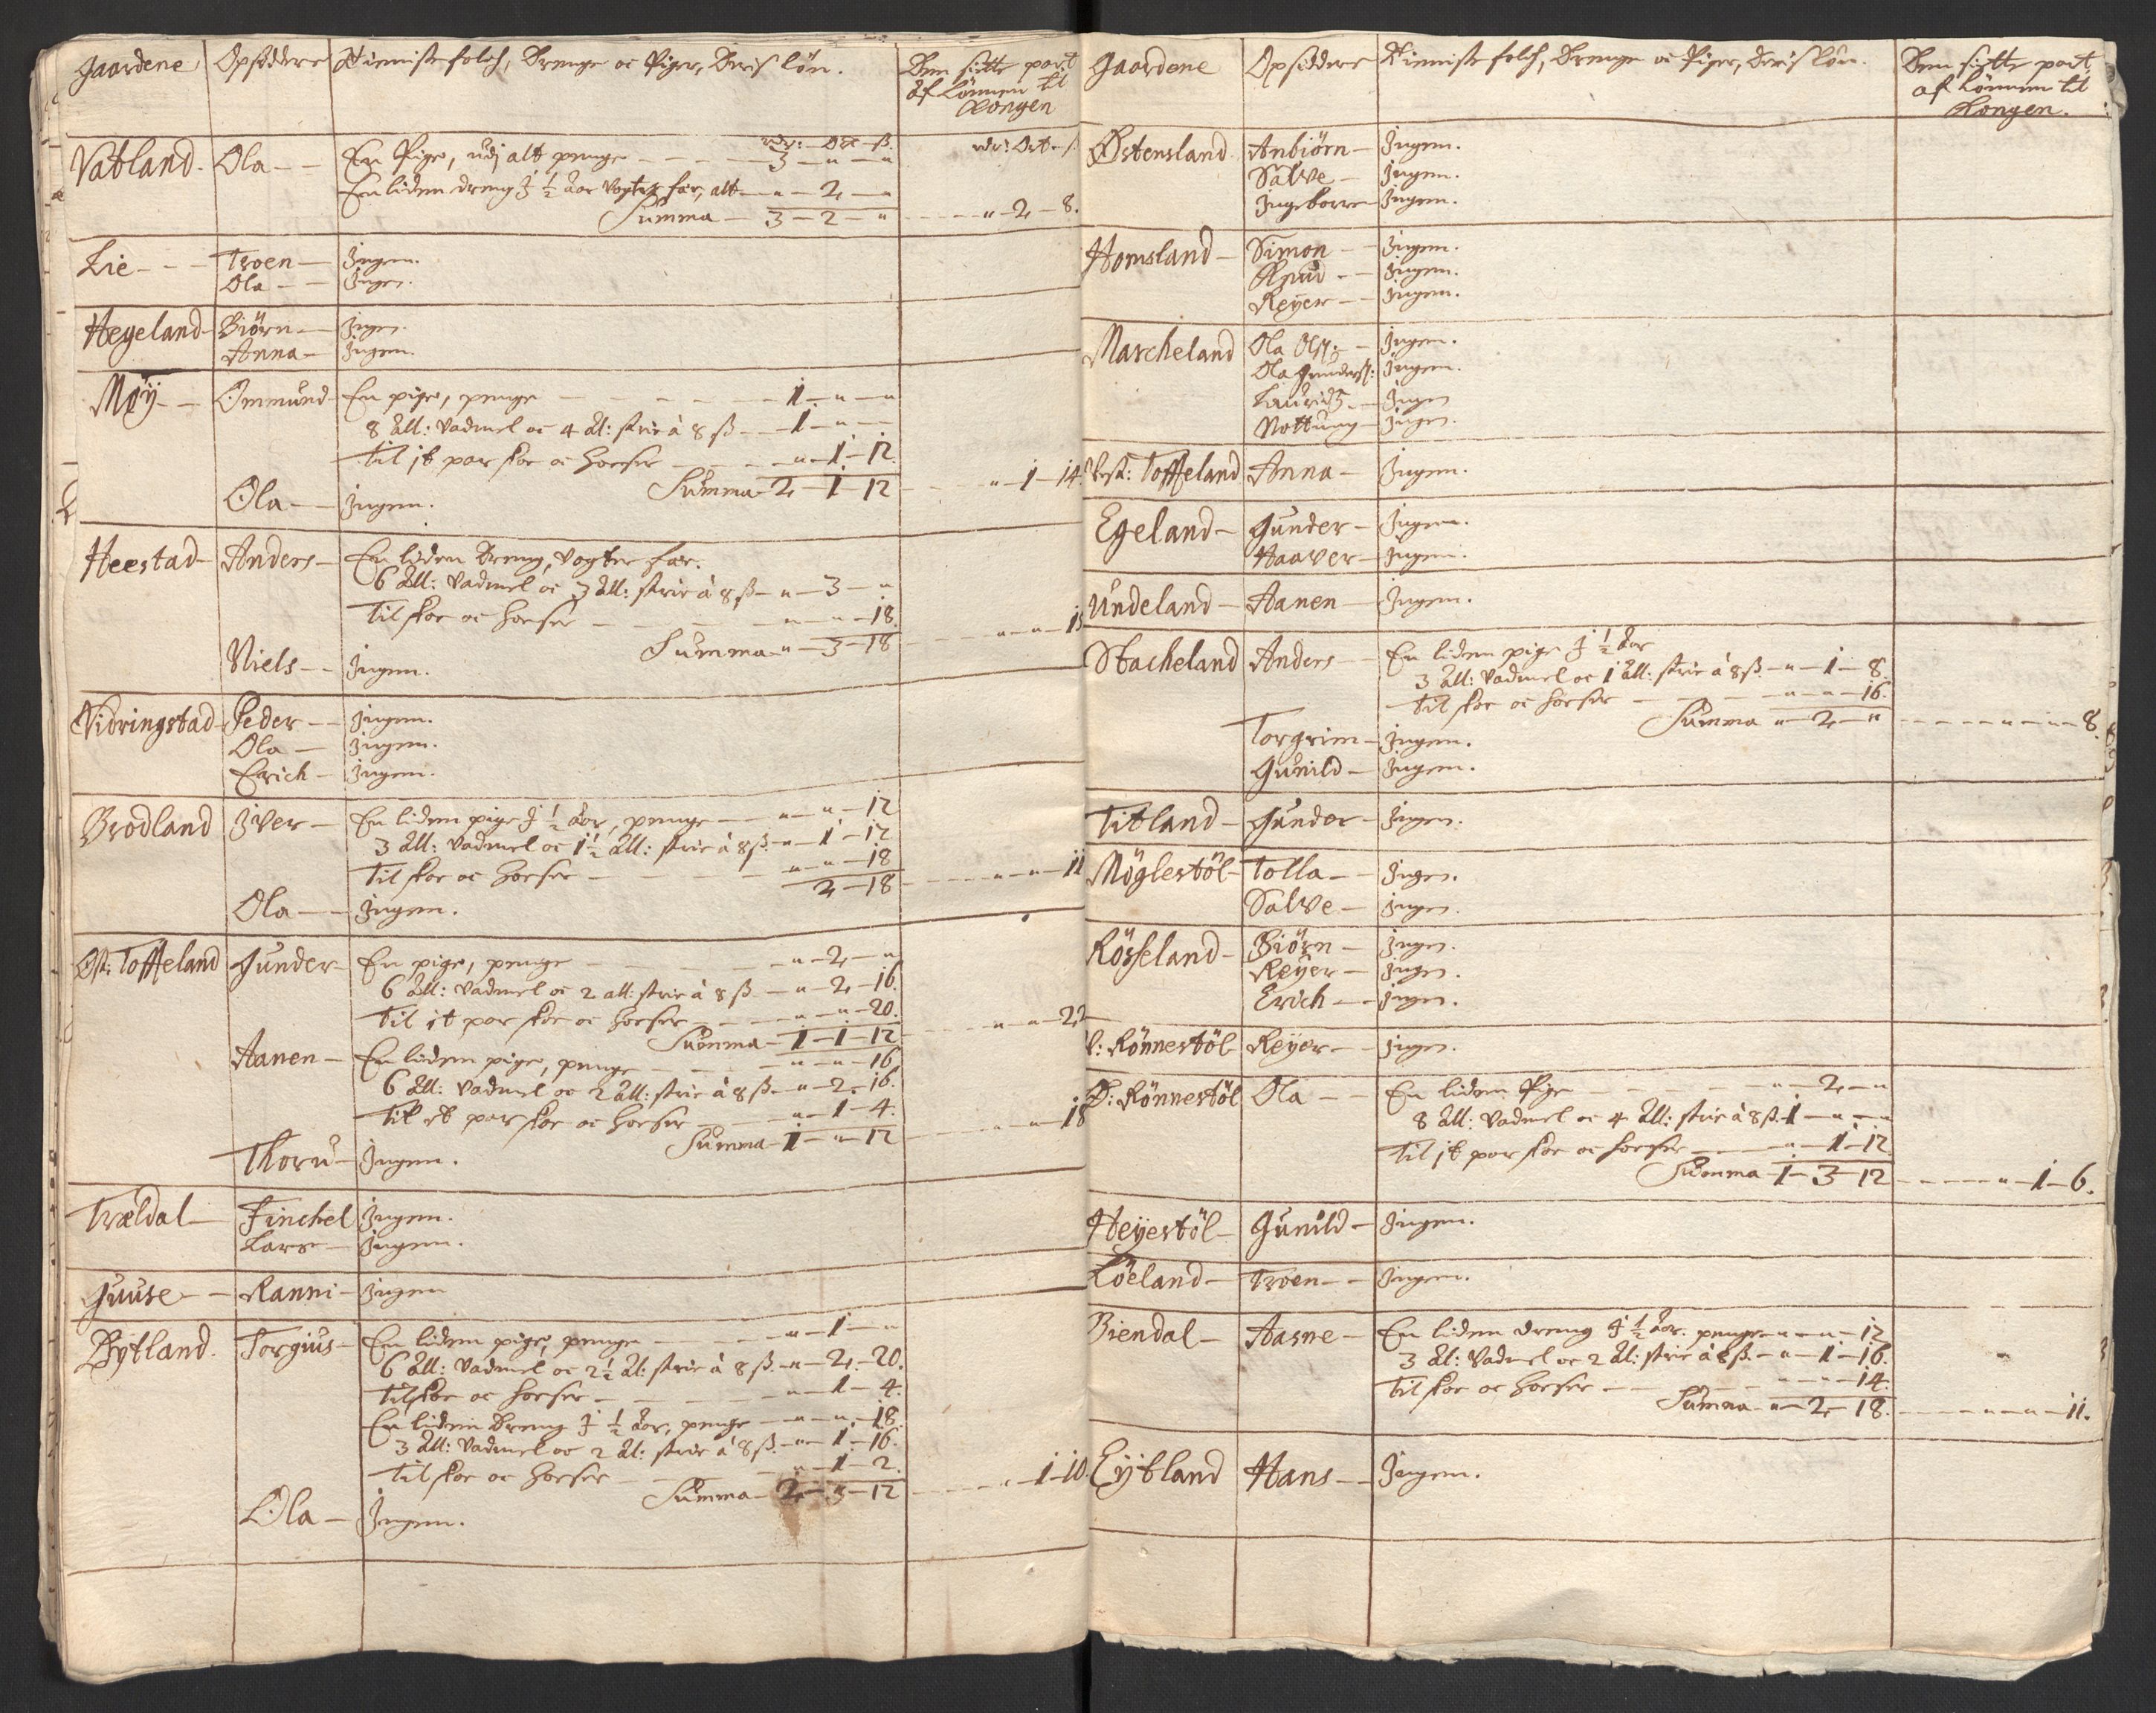 Gaardene Opsiddere Tienniste folch, Drenge oc Piger, Deris løn. Den siette part
af Lønnen til
Kongen
rdr: Ort ß. rdr: Ort ß.
Vatland Ola En Pige, udj alt penge 3 " "
En liden dreng J ½ Aar vogter fæ, alt " 2 "
Summa 3 2 " " 2 8.
Lie Troen Jngen.
Ola Jngen.
Hegeland Biørn Jngen.
Anna Jngen.
Møÿ Ommund En pige, penge 1 " "
8 All: vadmel oc 4 Al: strie à 8 ß 1 " "
til jt par skoe oc hoeser " 1 12.
Summa 2 1 12 " 1 14.
Ola Jngen.
Heestad Anders En liden Dreng, vogter fæ.
6 All: vadmel oc 3 All: strie à 8 ß " 3 "
til skoe oc hoeser " " 18.
Summa " 3 18 " " 15
Niels Jngen.
Vidringstad Peder Jngen.
Ola Jngen.
Erich Jngen.
Brodland Jver En liden pige J ½ Aar, penge " " 12
3 All: vadmel oc 1½ All: strie à 8 ß. " 1 12
til skoe oc hoeser " " 18
2 18 " " 11
Ola Jngen.
Øst: Toffteland Gunder En pige, penge " 2 "
6 All: vadmel oc 2 all: strie à 8 ß " 2 16.
til jt par skoe oc hoeser " " 20.
Summa 1 1 12 " " 22
Aanen En liden pige, penge " " 16
6 All: vadmel oc 2 All: strie à 8 ß. " 2 16.
til et par skoe oc hoeser " 1 4.
Summa 1 " 12 " " 18
Thoru Jngen.
Trældal Finchel Jngen.
Lars Jngen.
Guuse Ranni Jngen
Bÿtland Torgius En liden pige, penge " 1 "
6 All: vadmel oc 2½ Al: strie à 8 ß. " 2 20.
til skoe oc hoeser " 1 4.
En liden Dreng J ½ Aar, penge " " 18
3 All: vadmel oc 2 Al: strie à 8 ß. " 1 16.
til skoe oc hoeser " 1 2.
Summa 2 " 12 " 1 10.
Ola Jngen.
Gaardene Opsiddere Tienniste folch, Drenge oc Piger, Deris Løn. Den siette part
af Lønnen til
Kongen.
Østensland Anbiørn Jngen.
Salve Jngen.
Jngeborre Jngen.
Homsland Simon Jngen.
Knud Jngen.
Reÿer Jngen.
Marcheland Ola Olß: Jngen.
Ola Gunderß: Jngen.
Lauridz Jngen
Nottung Jngen.
Vest: Toffteland Anna Jngen.
Egeland Gunder Jngen.
Haaver Jngen.
Undeland Aanen Jngen.
Stacheland Anders En liden pige J ½ Aar
3 All: vadmel oc 1 All: strie à 8 ß. " 1 8.
til skoe oc hoeser " " 16.
Summa " 2 " " " 8.
Torgrim Jngen.
Gunild Jngen.
Titland Gunder Jngen.
Møglestøl Tolla Jngen.
Salve Jngen.
Røsseland Biørn Jngen.
Reÿer Jngen.
Erich Jngen.
V: Rønnestøl Reÿer Jngen.
Ø: Rønnestøl Ola En liden Pige " 2 "
8 All: vadmel oc 4 All: strie à 8 ß. 1 " "
til jt par skoe oc hoeser " 1 12
Summa 1 3 12 " 1 6.
Heÿestøl Gunild Jngen.
Løeland Troen Jngen.
Biendal Aasne En liden dreng J ½ Aar. penge " " 12
3 Al: vadmel oc 2 Al: strie à 8 ß. " 1 16.
til skoe oc hoeser " " 14.
Summa " 2 18. " " 11.
Eÿtland Hans Jngen.